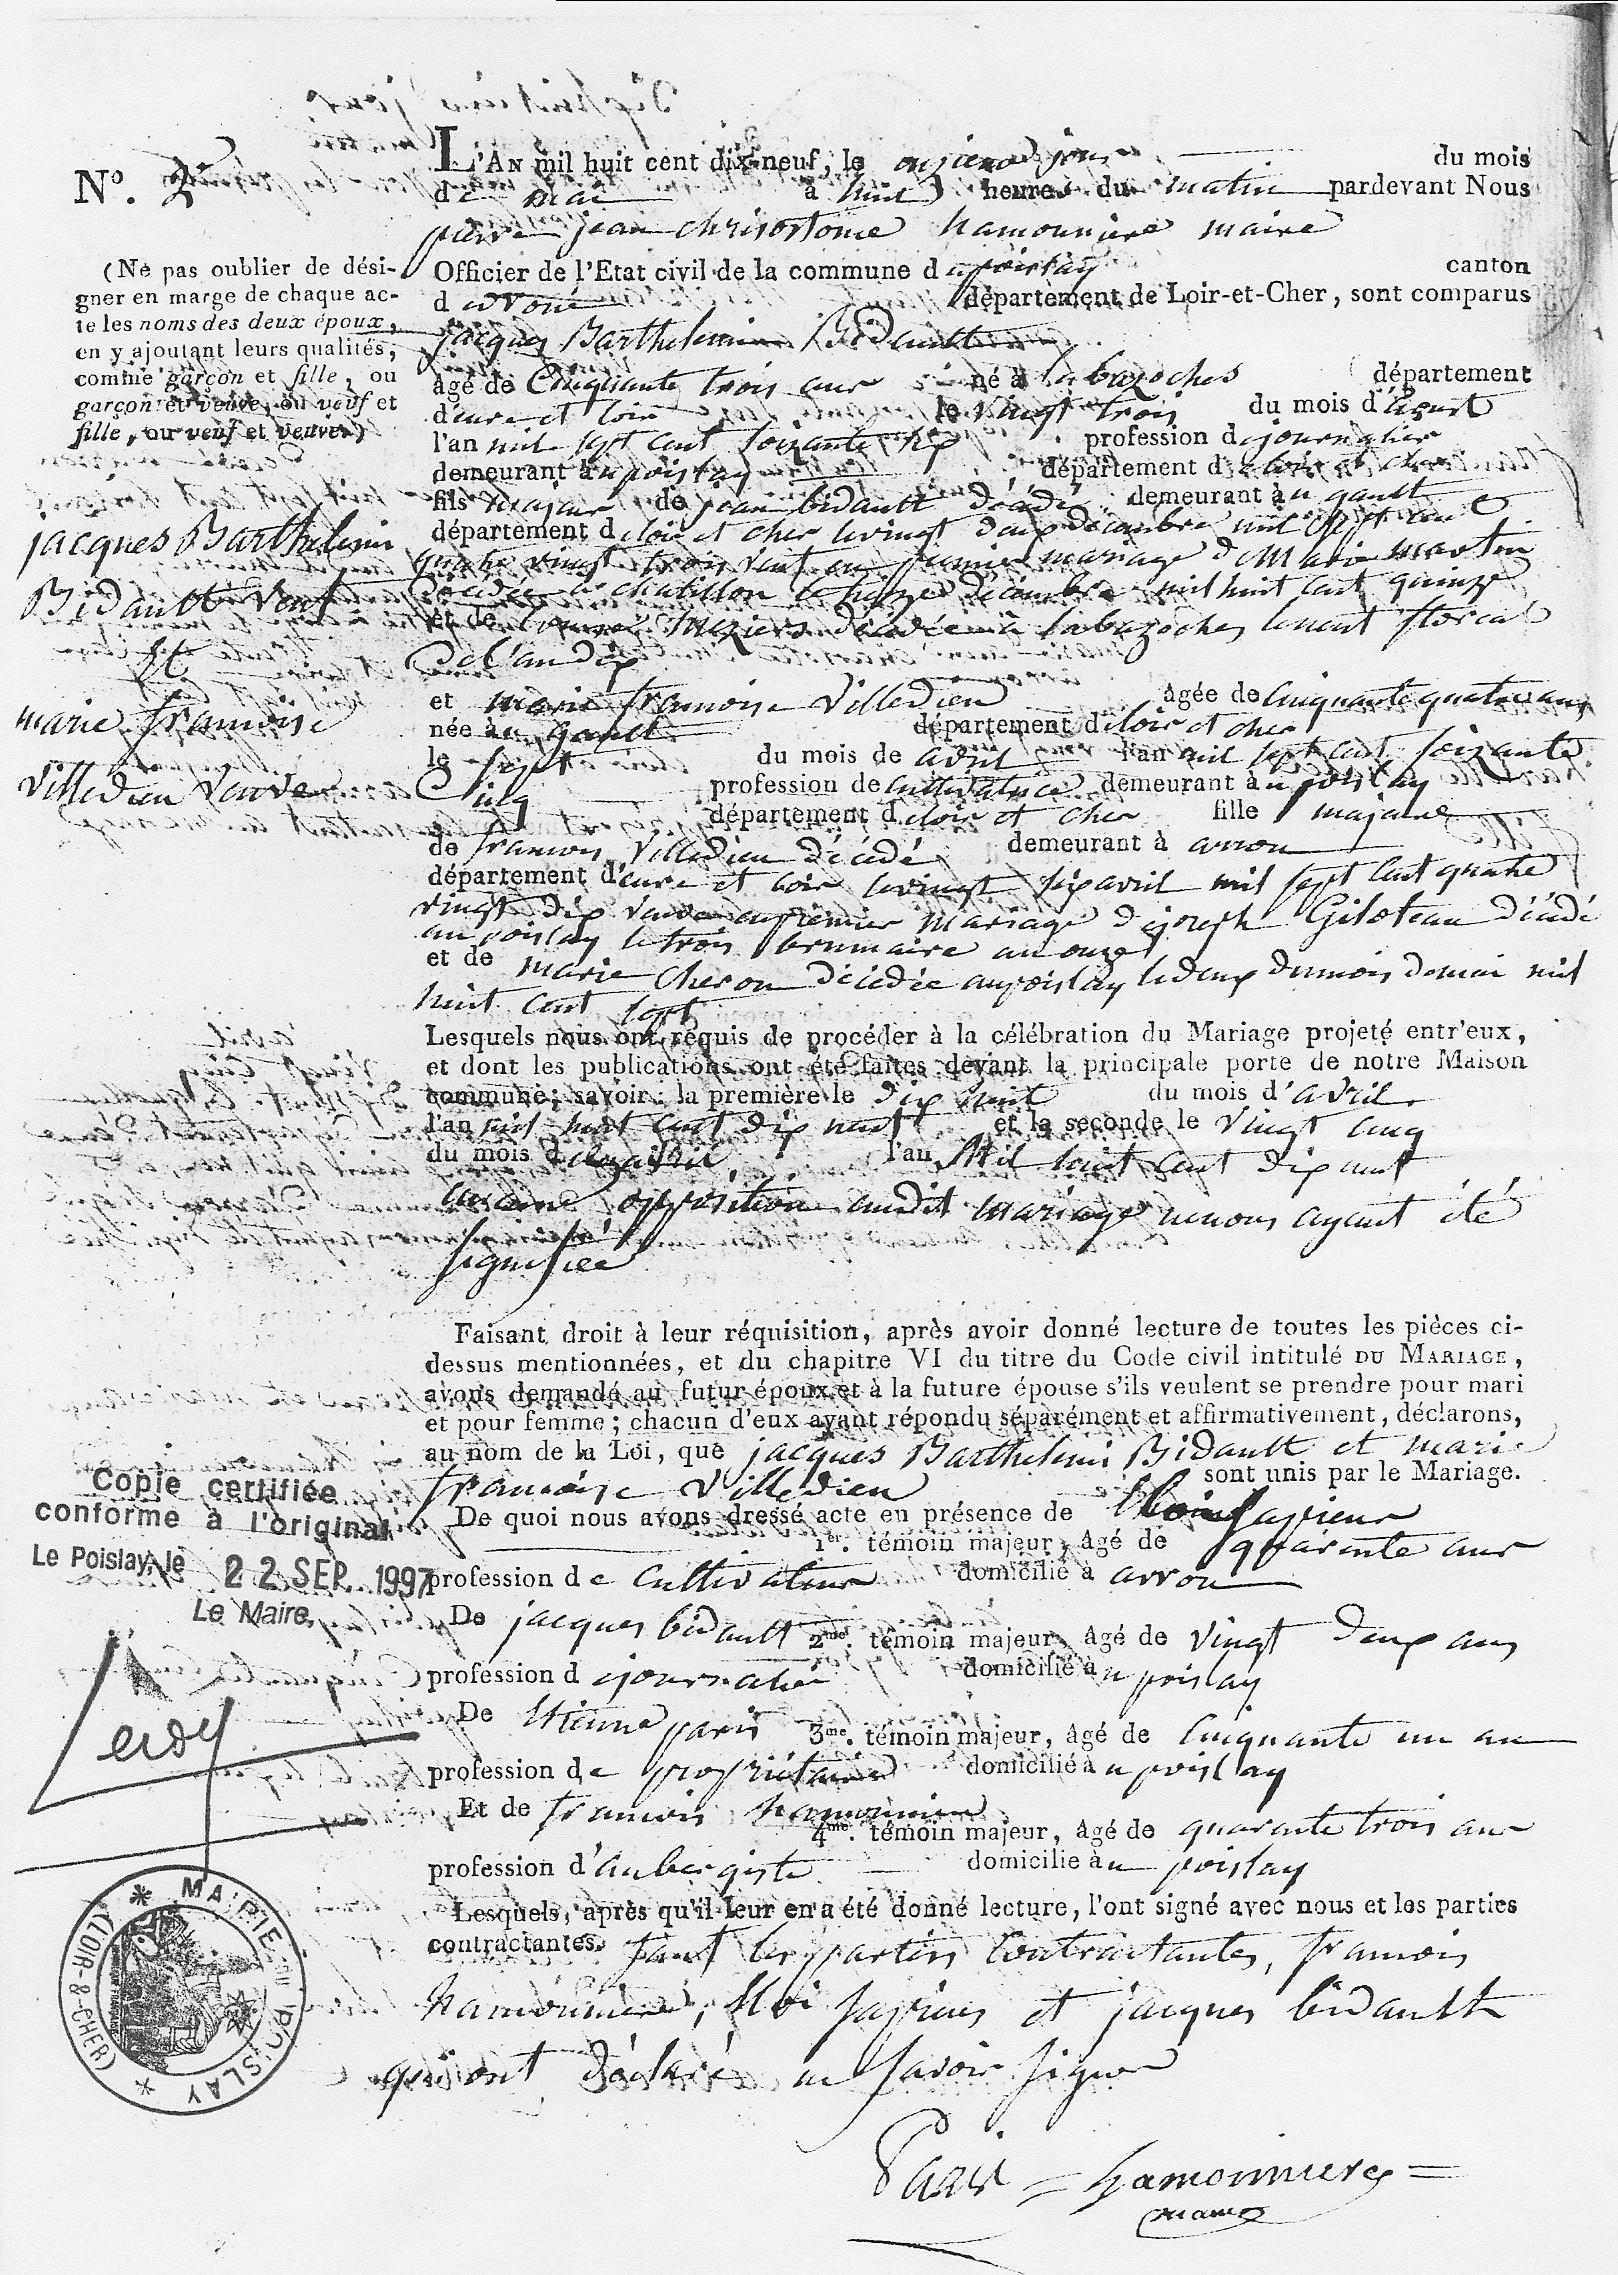 N°. 2
L'AN mil huit cent dix-neuf, le onzieme jour du mois
de mai à huit heures du matin pardevant Nous
pierre jean chrisostome hamonniere maire
Officier de l'Etat civil de la commune du poislay canton
d département de Loir-et-Cher, sont comparus
jacques Barthelemi Bidault
âgé de Cinquante trois ans né à la bazoches département
d'eure et loir le vingt trois du mois d'
l'an mil sept cent soixante profession de journalier
demeurant à u poislay département de loir et cher
fils majeur de jean bidault décédé demeurant à u gault
département de loir et cher le vingt deux decembre mil sept cent
quatre vingt trois veuf en premier mariage de Marie martin
décédée à chatillon le decembre mil huit cent quinze
et de décédée à la bazoches le floreal
de l'an dix
et marie francoise Villedieu âgée de Cinquante quatre ans
née à u gault département de loir et cher
le sept du mois de avril l'an mil sept cent soixante
Cinq profession de Cultivatrice demeurant à u poislay
département de loir et cher fille majeure
de francois Villedieu décédé demeurant à arrou
département d'eure et loir le vingt six avril mil sept cent quatre
vingt dix veuve en premier mariage de joseph Giloteau décédé
au poislay le trois brumaire an onze
et de marie Cheron décédée au poislay le deux du mois de mai mil
huit cent sept
Lesquels nous ont requis de procéder à la célébration du Mariage projeté entr'eux,
et dont les publications ont été faites devant la principale porte de notre Maison
commune; savoir: la première le dix huit du mois d'avril
l'an mil huit cent dix neuf et la seconde le vingt cinq
du mois d avril l'an Mil huit cent dix neuf
aucune opposition audit mariage ne nous ayant été
signifiée
Faisant droit à leur réquisition, après avoir donné lecture de toutes les pièces ci-
dessus mentionnées, et du chapitre VI du titre du Code civil intitulé DU MARIAGE,
avons demandé au futur époux et à la future épouse s'ils veulent se prendre pour mari
et pour femme; chacun d'eux ayant répondu séparément et affirmativement, déclarons,
au nom de la Loi, que jacques Barthelemi Bidault et marie
francoise Villedieu sont unis par le Mariage.
De quoi nous avons dressé acte en présence de
1er. témoin majeur, âgé de quarente ans
profession de Cultivateur domicilié à arrou
De jacques bidault 2me. témoin majeur, âgé de vingt deux ans
profession de journalier domicilié à u poislay
De Etienne paris 3me. témoin majeur, âgé de Cinquante un an
profession de propriétaire domicilié à u poislay
Et de francois hamonniere 4me. témoin majeur, âgé de quarante trois ans
profession d'aubergiste domicilié à u poislay
Lesquels, après qu'il leur en a été donné lecture, l'ont signé avec nous et les parties
contractantes. sauf les parties Contractantes, francois
hamonniere, et jacques bidault
qui ont déclaré ne savoir signer
Paris = hamonniere =
maire
(Ne pas oublier de dési-
gner en marge de chaque ac-
te les noms des deux époux,
en y ajoutant leurs qualités,
comme garçon et fille, ou
garçon et veuve, ou veuf et
fille, ou veuf et veuve.)
jacques Barthelemi
Bidault Veuf
Et
marie francoise
Villedieu Veuve
Copie certifiée
conforme à l'original
Le Poislay, le 22 SEP. 1997
Le Maire,
Leroy
MAIRIE DU POISLAY
(LOIR-&-CHER)